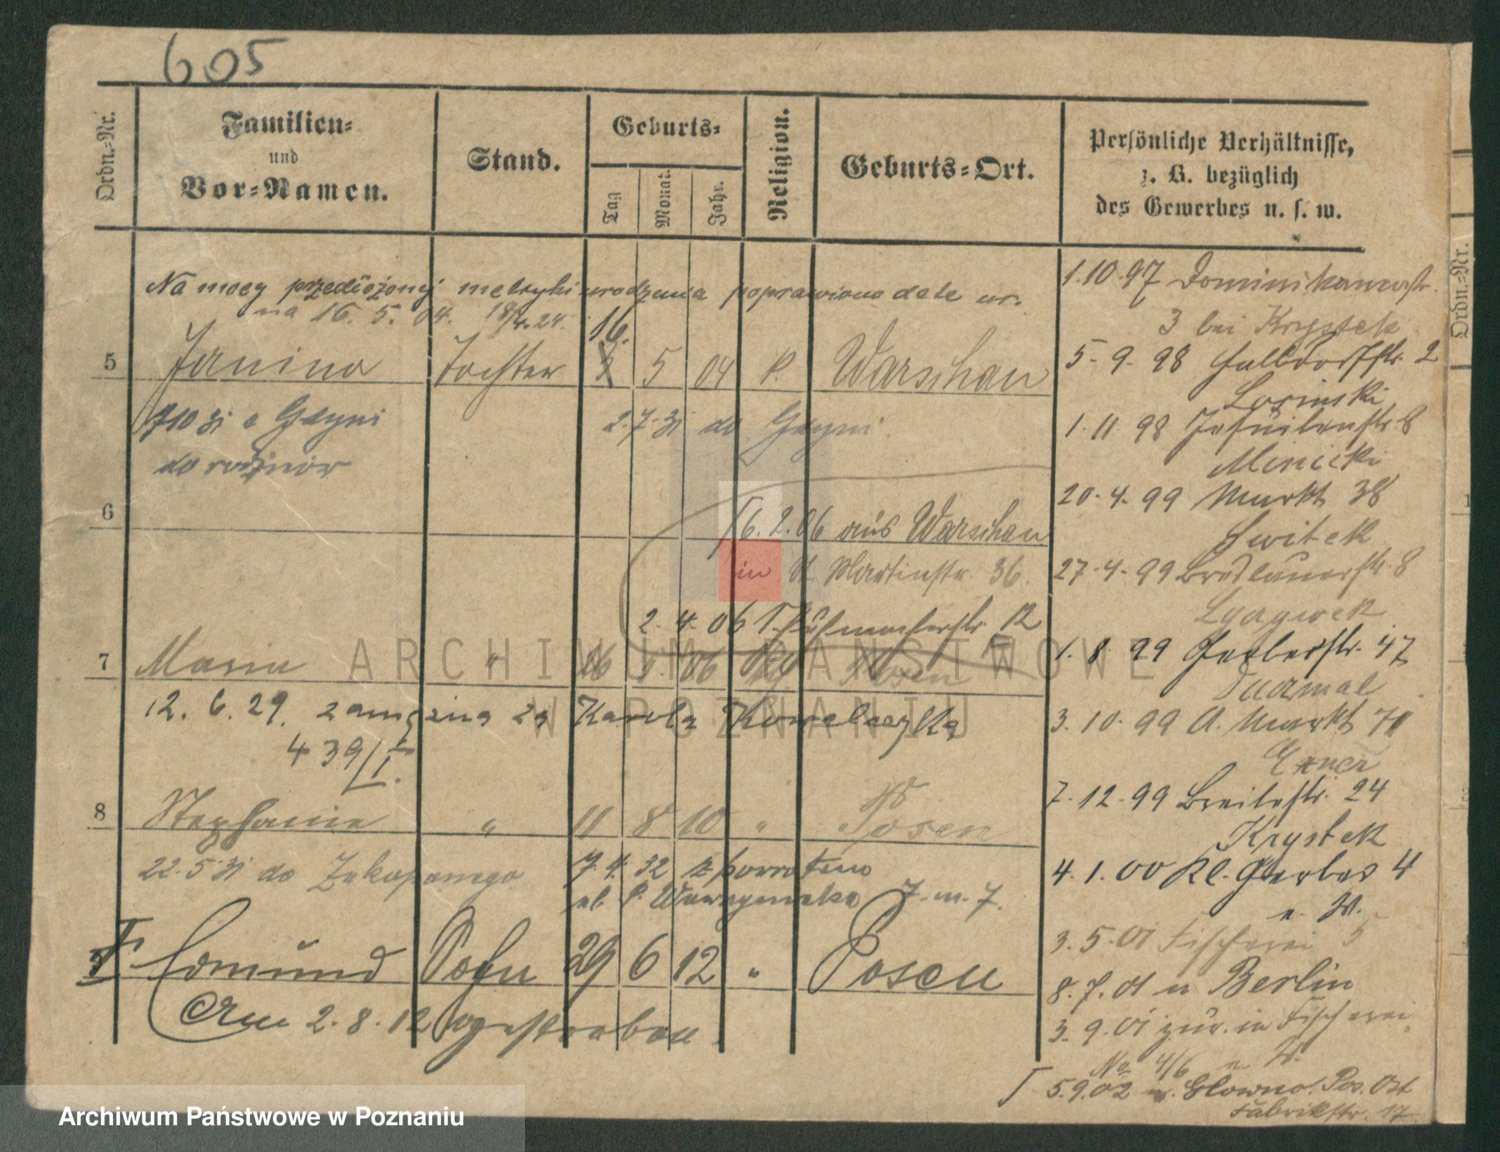 605
Ordn.-Nr.
Familien-
und
Vor-Namen.
Stand.
Geburts-
Tag
Monat.
Jahr.
Religion.
Geburts-Ort.
Persönliche Verhältnisse,
z. B. bezüglich
des Gewerbes u. s. w.
Na mocy przedłożonej metryki urodzenia poprawiono date ur.
na 16. 5. 04.
16.
5 Janina Tochter 3 5 04 k. Warschau
z Gdyni 2.7.31 do Gdyni.
do rodziców
6
6.2.06 aus Warschau
in St. Martinstr. 36.
2. 4. 06 12
7 Maria " 06 Posen
12. 6. 29. zamężna za Karola
439/I.
8 Stephanie " 11 8 10 " Posen
22.5.31 do Zakopanego
7.4.32 z powrotem
7. m. 7.
9 Edmund Sohn 29 6 12 " Posen
Am 2. 8. 12 gestorben.
1.10.97 Dominikanerstr.
3 bei Krystek
5. 9. 98 Halldorfstr. 2
Losinski
1. 11 98 Jesuitenstr. 8
20. 4. 99 Markt 38
Switek
27. 4. 99 Breslauerstr. 8
1. 8. 99 47
3. 10. 99 A. Markt 71
7. 12. 99 Breitestr. 24
Krystek
4. 1. 00 Kl. Gerber 4
n. W.
3. 5. 01 Fischerei 5
8. 7. 01 n Berlin
3. 9. 01 zur. in Fischerei
No 4/6 n. W.
5.9.02 n. Glowno. Pos. Ost
Fabrikstr. 17
Ordn.-Nr.
ARCHIWUM PAŃSTWOWE
W POZNANIU
Archiwum Państwowe w Poznaniu